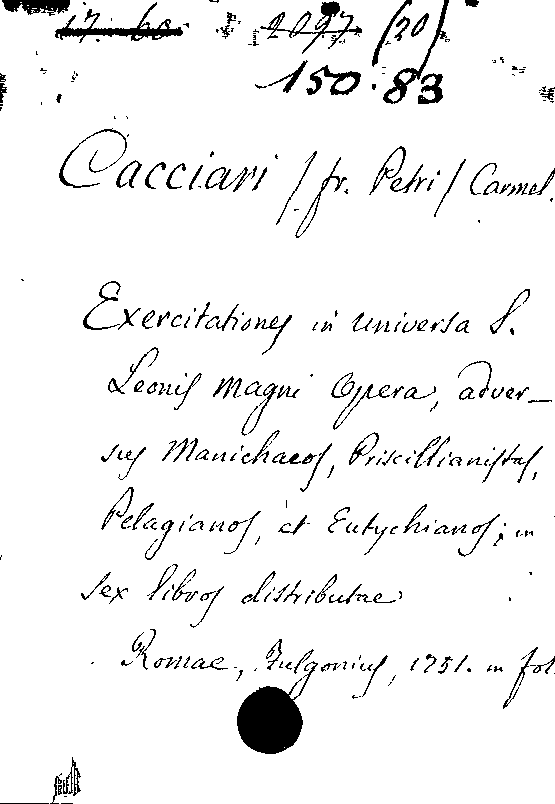 17. 60. 2097 (20)
150.83
Cacciari / fr. Petri / Carmel.
Exercitationes in universa S.
Leonis Magni Opera, adver-
sus Manichaeos, Priscillianistas,
Pelagianos, et Eutychianos; in
sex libros distributae
Romae, Fulgonius, 1751. in fol.